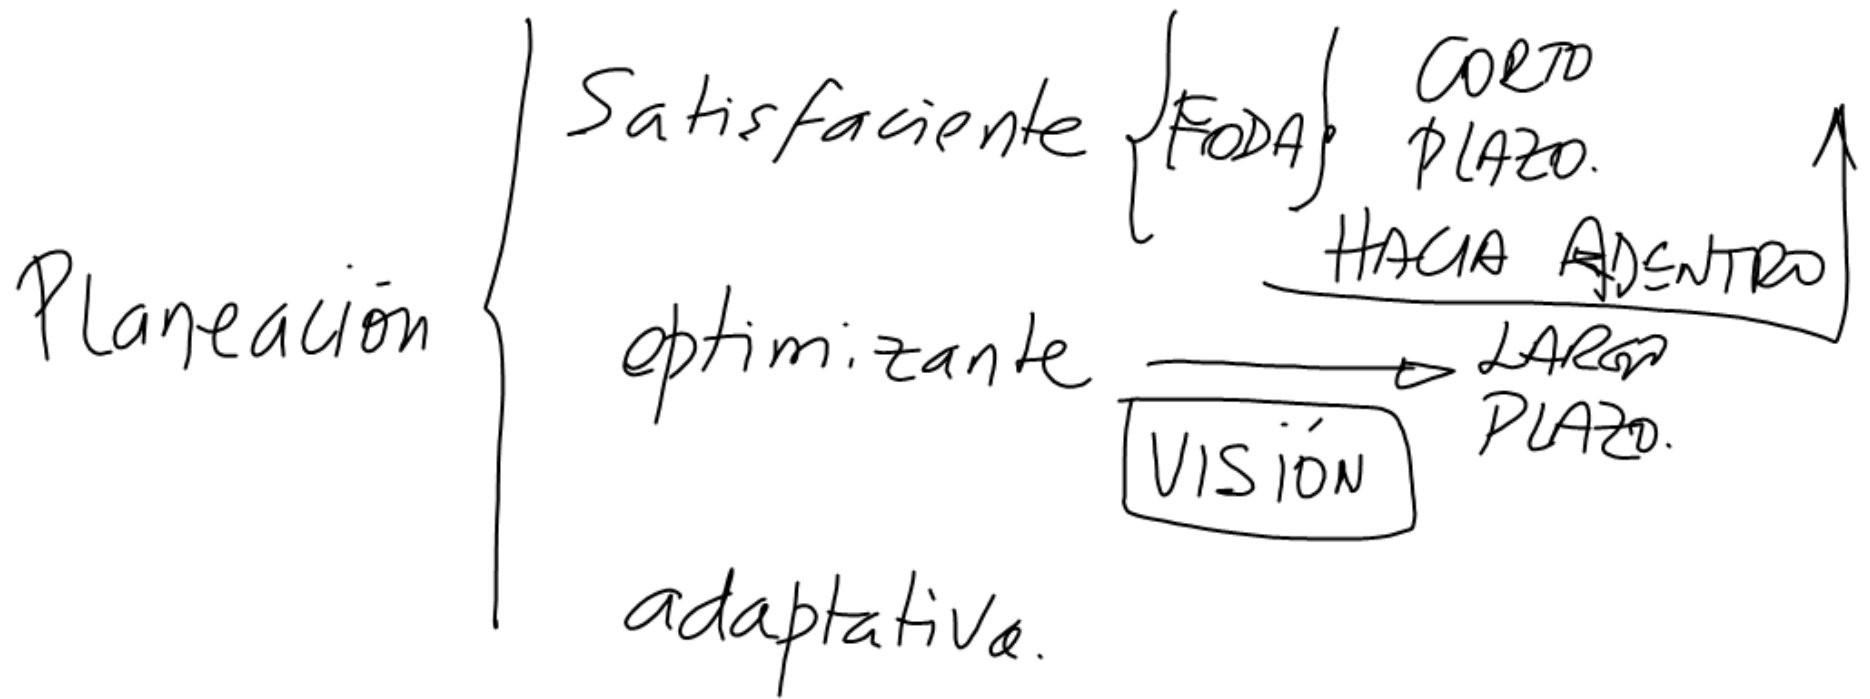 Planeación
Satisfaciente
FODA
CORTO
PLAZO.
HACIA ADENTRO
optimizante
LARGO
PLAZO.
VISIÓN
adaptativa.